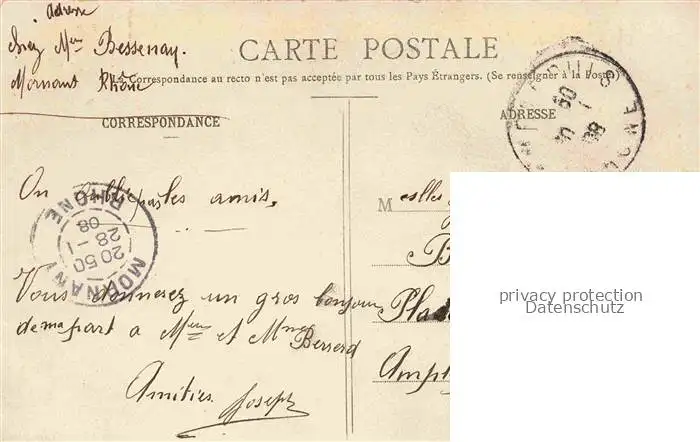 adresse
chez Mr Bessenay.
Mornant Rhône
CARTE POSTALE
La Correspondance au recto n'est pas acceptée par tous les Pays Étrangers. (Se renseigner à la Poste)
CORRESPONDANCE
ADRESSE
On oublie pas les amis,
MORNANT
20 50
28 - 1
08
RHÔNE
Vous donnerez un gros bonjour
de ma part a Mr et Mme
Berserd
Amitiés Joseph
M eslles
B
Pla
Amp
privacy protection
Datenschutz